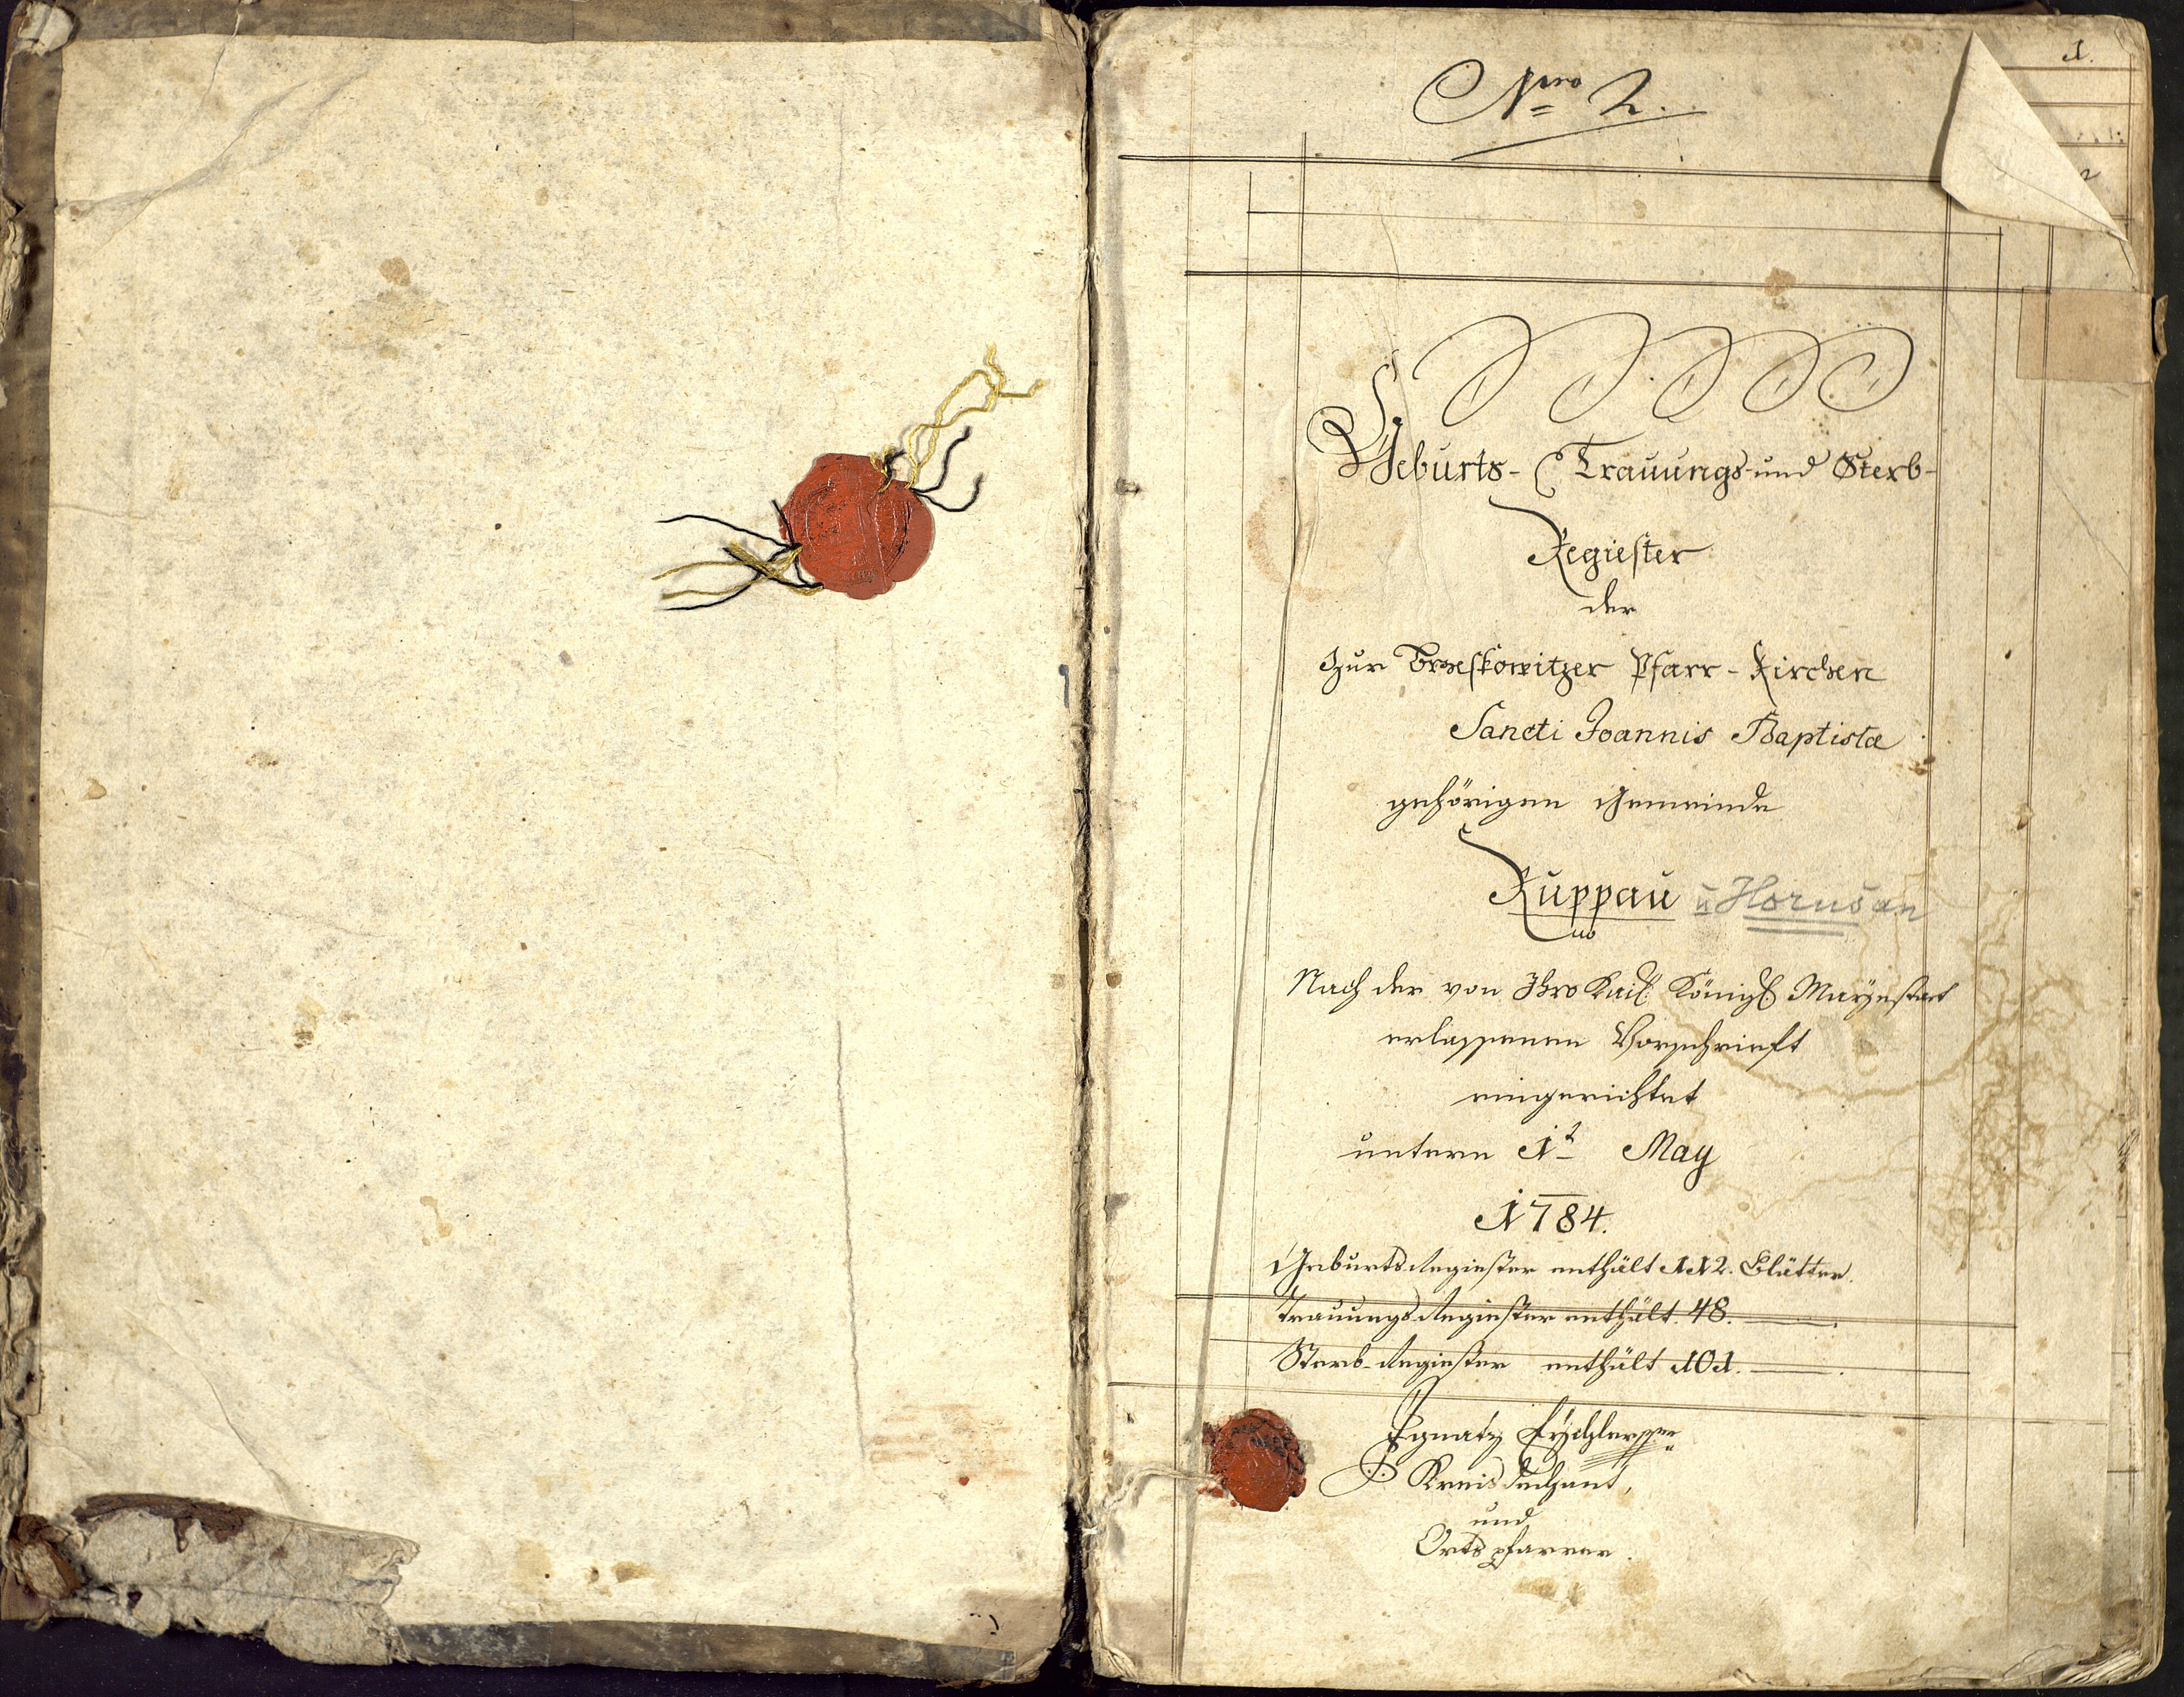 1.
Nro 2.
Geburts- Trauungs- und Sterb-
Regiester
der
zur Brzeskowitzer Pfarr-Kirchen
Sancti Joannis Baptistæ
gehörigen Gemeinde
Ruppau u Horušan
Nach der von Ihro Kais. Königl. Mayestaet
erlassenen Vorschrieft
eingerichtet
untern 1t May
1784.
Geburts Regiester enthält 112. Blätter.
Trauungs Regiester enthält 48.
Sterb-Regiester enthält 101.
Ignatz
Kreis Dechant,
und
Orts pfarrer.